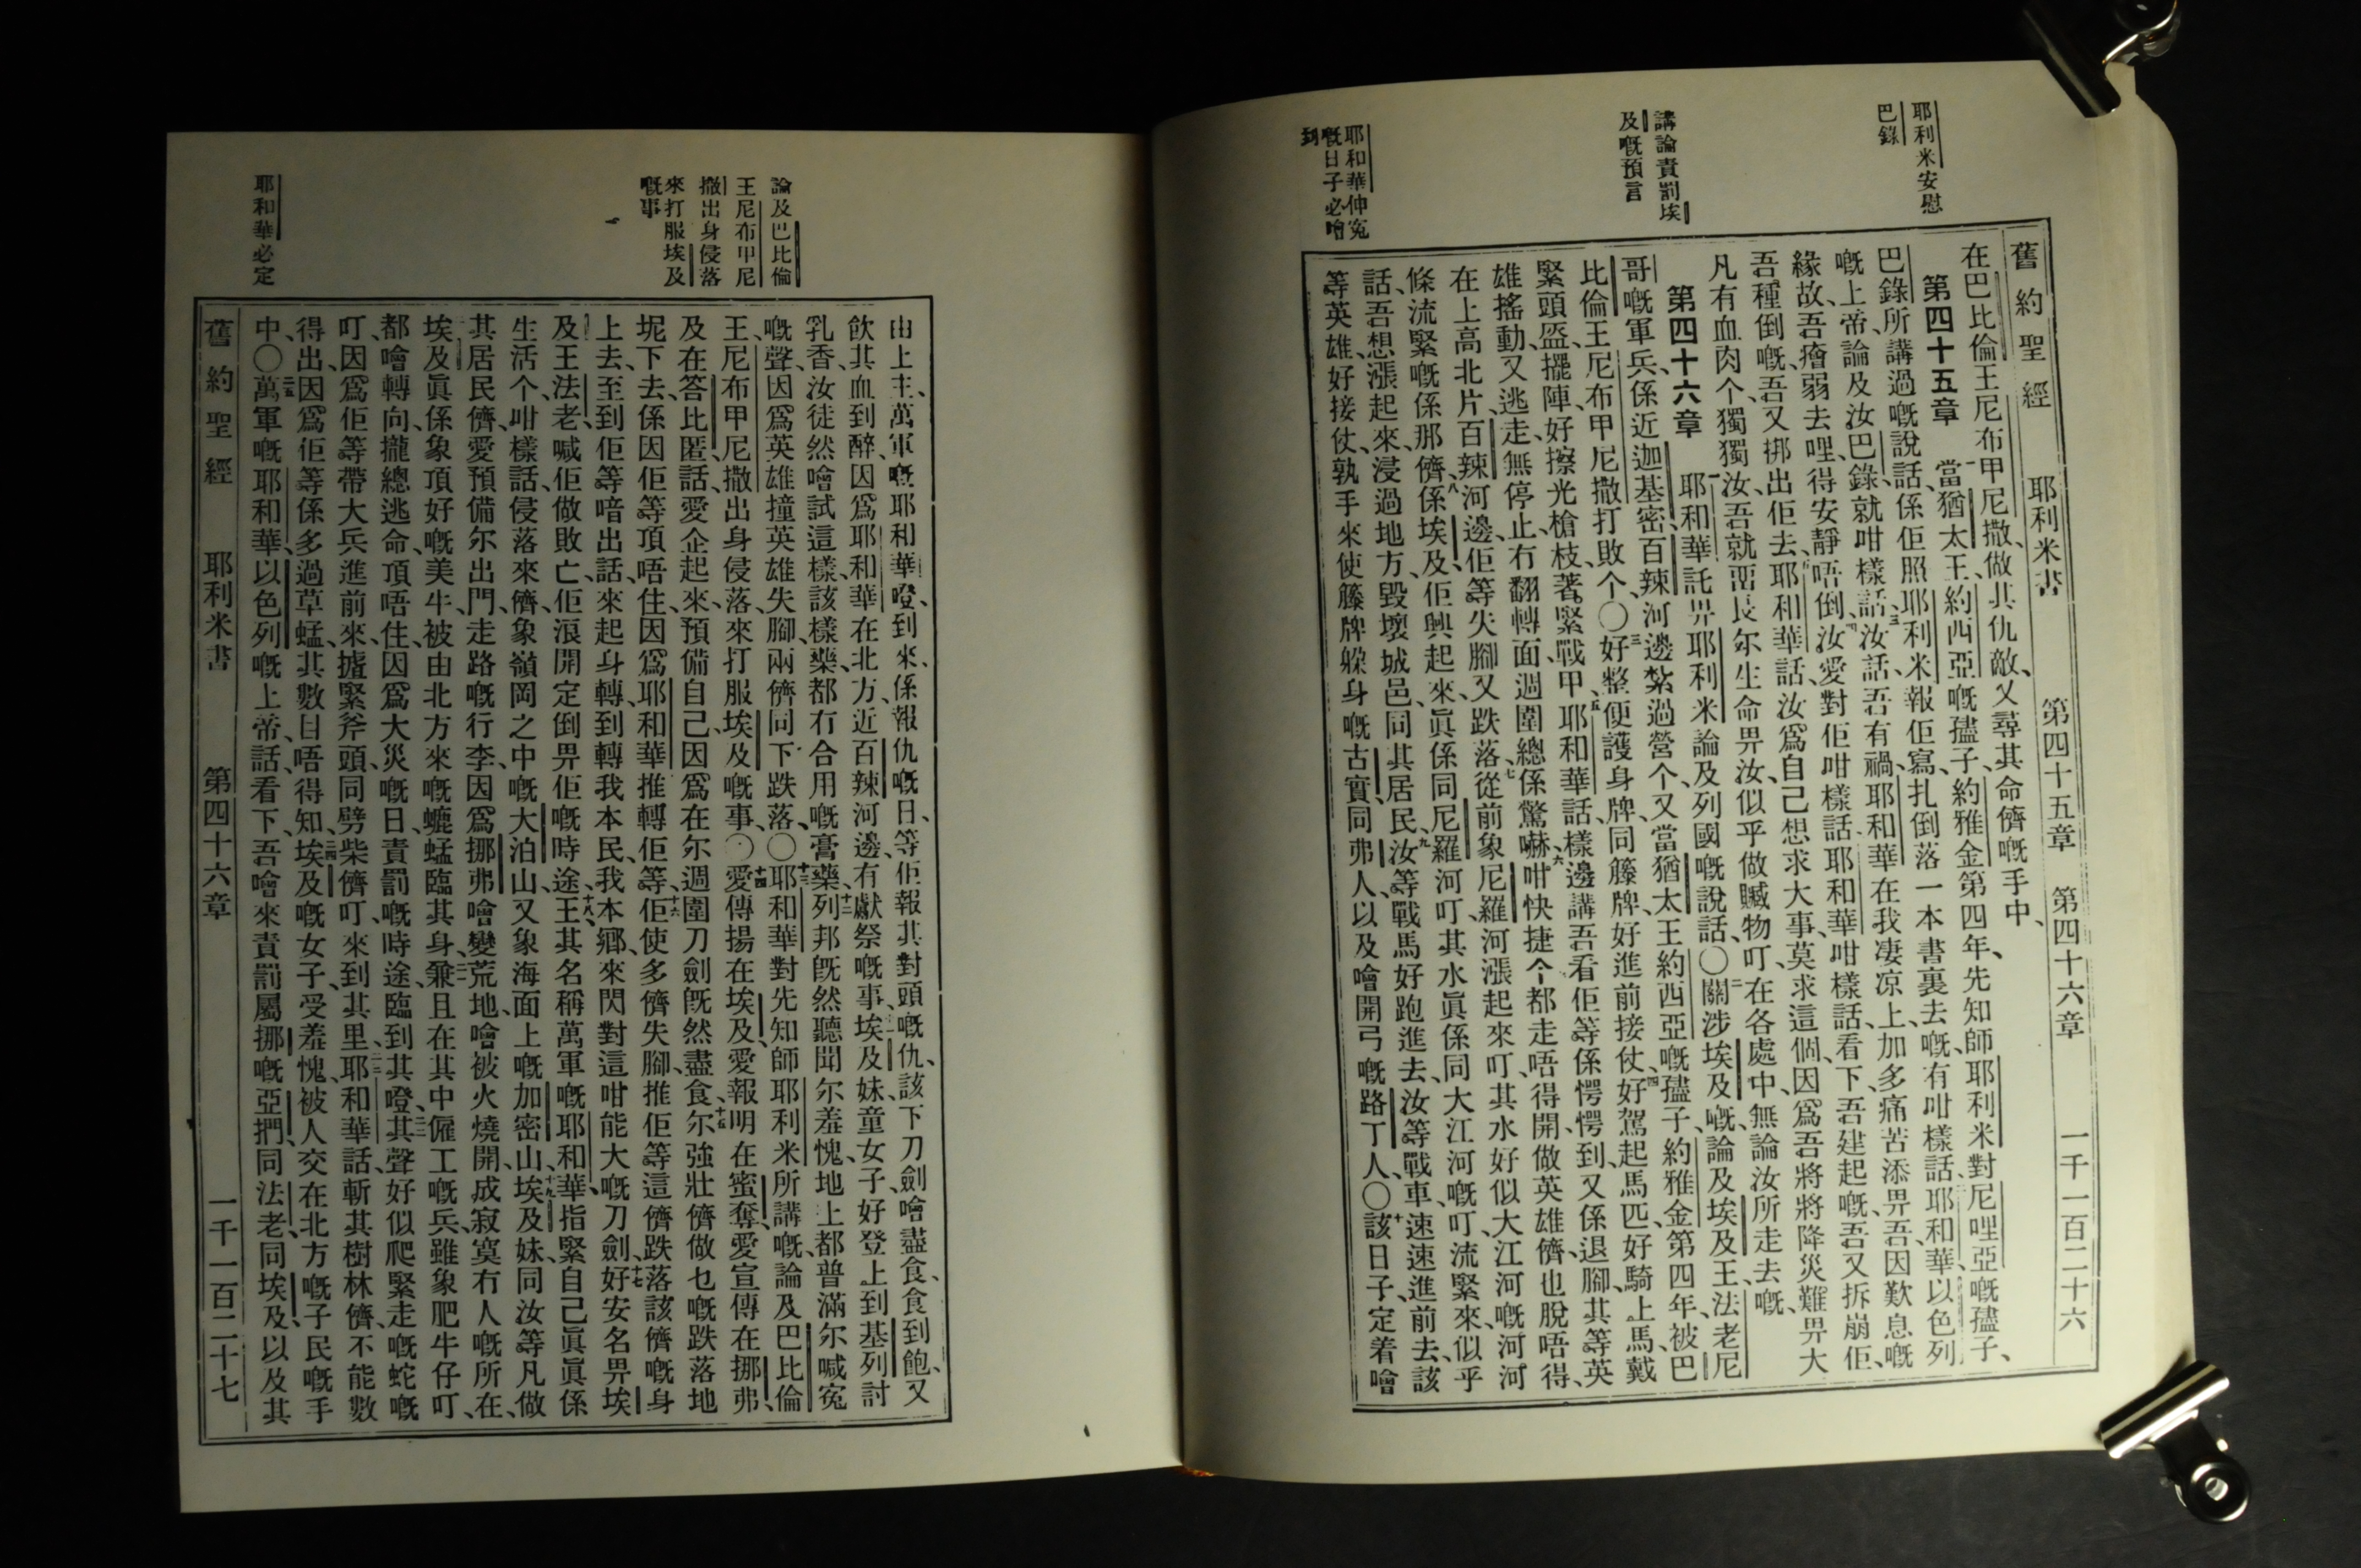 耶利米安慰
巴錄
講論責罰埃
及嘅預言
耶和華伸冤
嘅日子必噲
到
舊約聖經 耶利米書 第四十五章 第四十六章 一千一百二十六
在巴比倫王尼布甲尼撒、做其仇敵、又尋其命儕嘅手中、
第四十五章 一當猶太王、約西亞嘅孻子、約雅金第四年、先知師耶利米對尼哩亞嘅孻子、
巴錄所講過嘅說話、係佢照耶利米報佢寫、扎倒落一本書裏去嘅、有咁樣話、二耶和華以色列
嘅上帝、論及汝巴錄、就咁樣話、三汝話、吾有禍、耶和華在我凄凉上、加多痛苦添畀吾、因歎息嘅
緣故、吾癐弱去哩、得安靜唔倒、四汝愛對佢咁樣話、耶和華咁樣話、看下、吾建起嘅、吾又拆崩佢、
吾種倒嘅、吾又揤出佢去、五耶和華話、汝爲自己想求大事、莫求這個、因爲吾將將降災難畀大
凡有血肉个、獨獨汝、吾就畱長尔生命畀汝、似乎做贓物叮、在各處中、無論汝所走去嘅、
第四十六章 一耶和華託畀耶利米論及列國嘅說話、〇二關涉埃及嘅、論及埃及王、法老尼
哥嘅軍兵、係近迦基密、百辣河邊、紮過營个、又當猶太王約西亞嘅孻子、約雅金第四年、被巴
比倫王尼布甲尼撒打敗个、〇三好整便護身牌、同籐牌、好進前接仗、四好駕起馬匹、好騎上馬、戴
緊頭盔、擺陣、好擦光槍枝、著緊戰甲、五耶和華話、樣邊講吾看佢等係愕愕到、又係退腳、其等英
雄搖動、又逃走、無停止、冇翻轉面、週圍總係驚嚇、六咁快捷个都走唔得開、做英雄儕、也脫唔得、
在上高北片、百辣河邊、佢等失腳、又跌落、七從前象尼羅河漲起來叮、其水好似大江河嘅河河
條流緊嘅係那儕、八係埃及、佢興起來、眞係同尼羅河叮、其水眞係同大江河嘅叮、流緊來、似乎
話、吾想漲起來、浸過地方、毀壞城邑、同其居民、九汝等戰馬好跑進去、汝等戰車速速進前去、該
等英雄、好接仗、孰手來使籐牌躲身嘅古實、同弗人、以及噲開弓嘅路丁人、〇十該日子、定着噲
論及巴比倫
王尼布甲尼
撒出身侵落
來打服埃及
嘅事
耶和華必定
由上主、萬軍嘅耶和華、噔到來、係報仇嘅日、等佢報其對頭嘅仇、該下刀劍噲盡食、食到飽、又
飲其血到醉、因爲耶和華在北方、近百辣河邊、有獻祭嘅事、十一埃及妹童女子、好登上到基列討
乳香、汝徒然噲試這樣、該樣藥、都冇合用嘅膏藥、十二列邦旣然聽聞尔羞愧、地上都普滿尔喊寃
嘅聲、因爲英雄撞英雄失腳、兩儕同下跌落、〇十三耶和華對先知師耶利米所講嘅、論及巴比倫
王、尼布甲尼撒出身侵落、來打服埃及嘅事、〇十四愛傳揚在埃及、愛報明在蜜奪、愛宣傳在挪弗、
及在答比匿話、愛企起來、預備自己、因爲在尔週圍刀劍旣然盡食、十五尔強壯儕做乜嘅跌落地
坭下去、係因佢等頂唔住、因爲耶和華推轉佢等、十六佢使多儕失腳、推佢等這儕跌落該儕嘅身
上去、至到佢等喑出話、來起身轉、到轉我本民、我本鄉、來閃對這咁能大嘅刀劍、十七好安名畀埃
及王法老、喊佢做敗亡、佢浪開定倒畀佢嘅時途、十八王其名稱萬軍嘅耶和華、指緊自己眞眞係
生活个、咁樣話、侵落來儕、象嶺岡之中嘅大泊山、又象海面上嘅加密山、十九埃及妹、同汝等凡做
其居民儕、愛預備尔出門、走路嘅行李、因爲挪弗噲變荒地、噲被火燒開、成寂寞冇人嘅所在、
埃及眞係象頂好嘅美牛、被由北方來嘅螕蜢臨其身、兼且在其中僱工嘅兵、雖象肥牛仔叮、
都噲轉向、攏總逃命、頂唔住、因爲大災嘅日、責罰嘅時途、臨到其噔、其聲好似爬緊走嘅蛇嘅
叮、因爲佢等帶大兵進前來、攎緊斧頭、同劈柴儕叮、來到其里、耶和華話、斬其樹林儕、不能數
得出、因爲佢等係多過草蜢、其數目唔得知、二四埃及嘅女子、受羞愧、被人交在北方嘅子民嘅手
中、〇二五萬軍嘅耶和華、以色列嘅上帝話、看下、吾噲來責罰屬挪嘅亞捫、同法老、同埃及、以及其
舊約聖經 耶利米書 第四十六章 一千一百二十七